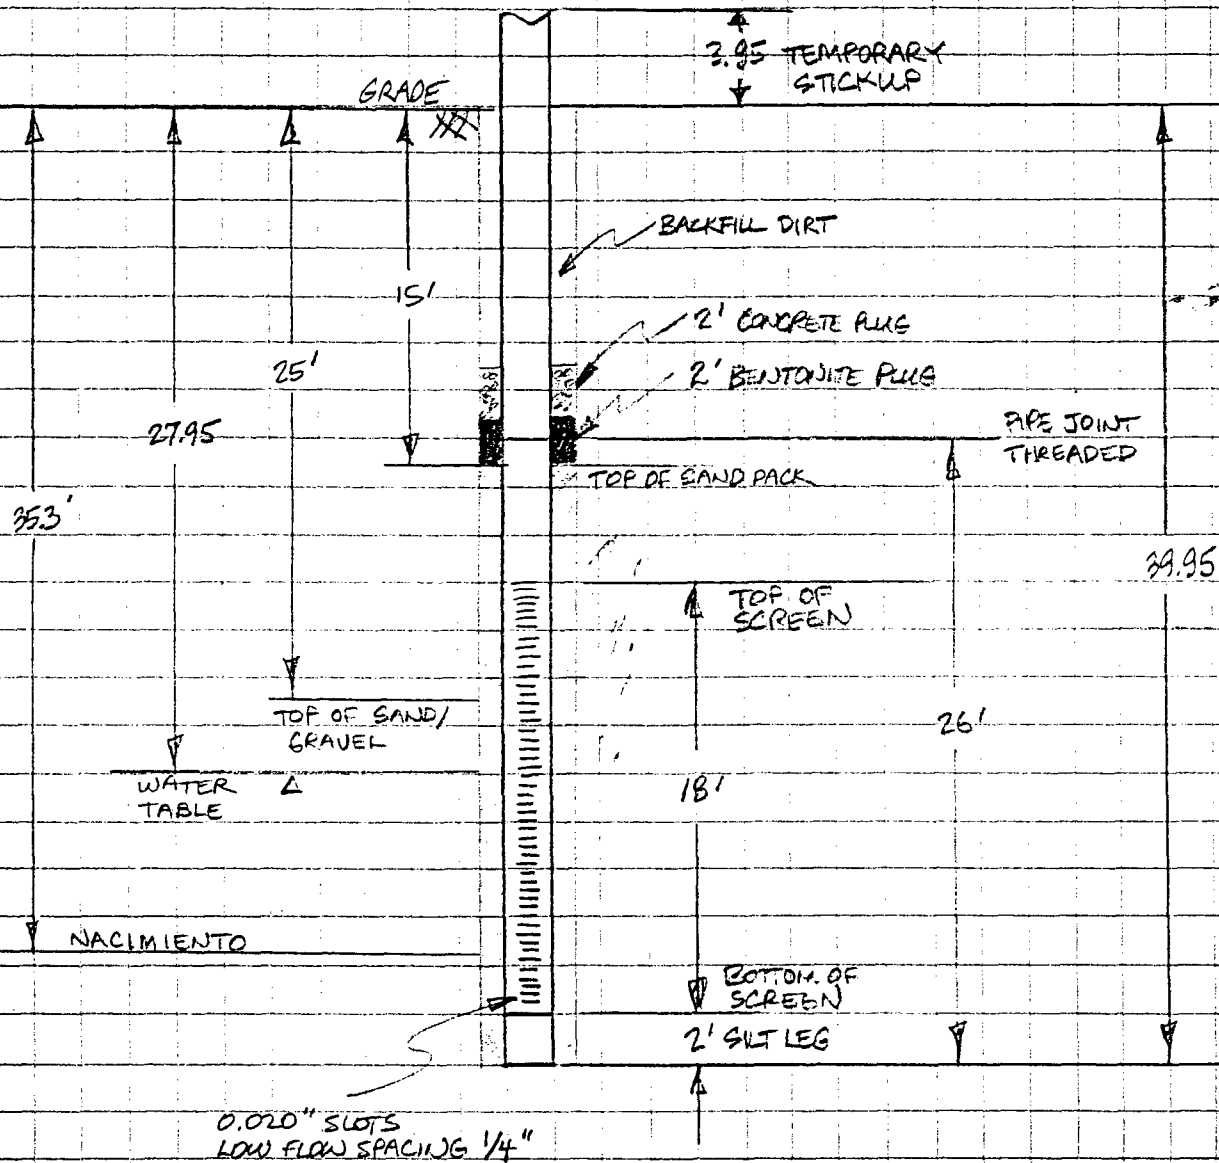 3.95 TEMPORARY
STICKUP
GRADE
BACKFILL DIRT
15'
2' CONCRETE PLUG
25'
2' BENTONITE PLUG
27.95
PIPE JOINT
THREADED
TOP OF SAND PACK
35.3'
39.95
TOP OF
SCREEN
TOP OF SAND/
GRAVEL
26'
WATER
TABLE
18'
NACIMIENTO
BOTTOM OF
SCREEN
2' SILT LEG
0.020" SLOTS
LOW FLOW SPACING 1/4"